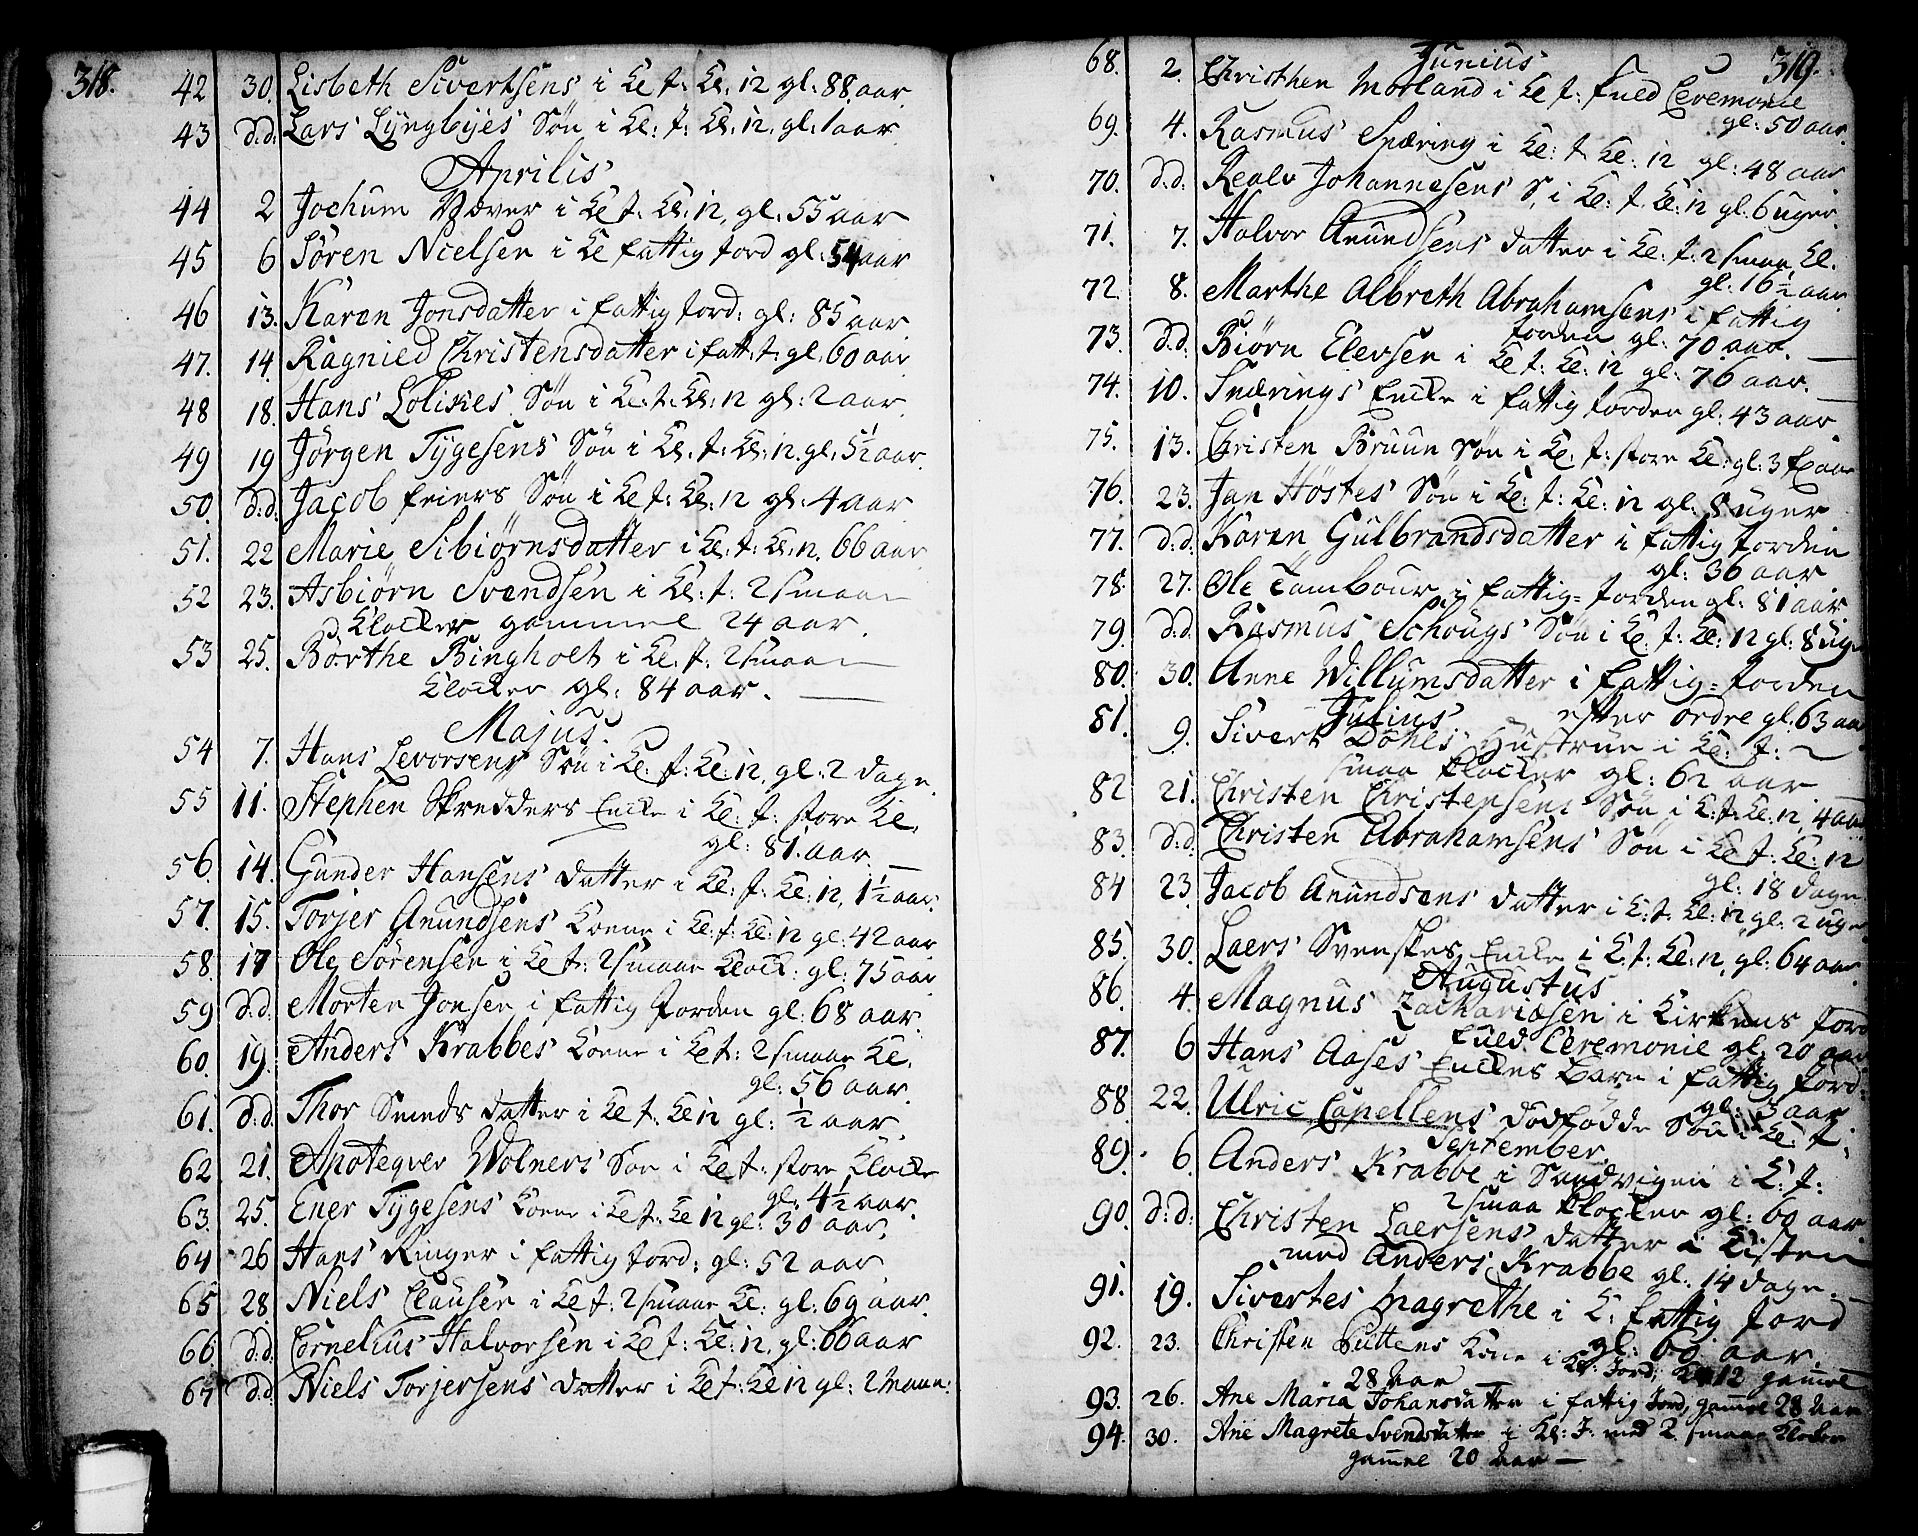 318.
42 30. Lisbeth Sivertsens i Ke t: Kl: 12 gl: 88 aar.
43 d:d: Lars Lyngbyes Søn i Kl: t: Kl: 12, gl: 1 aar.
Aprilis
44 2 Jochum Væver i Ke t: Kl: 12, gl: 55 aar
45 6 Sören Nielsen i Ke fattig Jord gl: 54 aar
46 13. Karen Jonsdatter i fattig Jord: gl: 85 aar
47. 14. Ragnied Christensdatter i fatt: t: gl: 60 aar
48 18. Hans Lolikes Søn i Ke: t: Kl: 12 gl: 2 aar.
49 19 Jörgen Tygesens Søn i Kl: t: Kl: 12. gl: 5½ aar.
50. d:d: Jacob feiers Søn i Ke t: Kl: 12 gl: 4 aar
51. 22 Marie Sibiørnsdatter i Ke: t: Kl: 12. 66 aar.
52 23. Asbiørn Svendsen i Kl: t: 2 smaae
Klocker gammel 24 aar.
53 25. Börthe Bingholt i Ke: t: 2 smaae
Klocker gl: 84 aar.
Majus
54 7. Hans Levorsens Søn i Ke: t: Ke: 12, gl: 2 dage.
55 11. Stephen Skredders Encke i Ke: t: store Kl.
gl: 81. aar.
56. 14. Gunder Hansens datter i Ke: t: Ke: 12, 1½ aar.
57. 15. Torjer Anundsens Kone i Ke: t: Ke: 12 gl: 42 aar
58. 17 Ole Sörensen i Ke t: 2 smaae Klock: gl: 75 aar
59 d:d: Morten Jonsen i fattig Jorden gl: 68 aar.
60. 19. Anders Krabbes Kone i Ke t: 2 smaae Kl.
gl: 56 aar.
61. d:d: Thor Smeds datter i Ke t: Ke 12 gl: ½ aar.
62 21. Apoteqver Wolners Søn i Ke t: store Klocke
gl: 4½ aar.
63. 25. Ener Tygesens Kone i Ke t: Ke 12 gl: 30 aar.
64 26 Hans Ringer i fattig Jord: gl: 52 aar
65 28. Niels Clausen i Ke t: 2 smaae Kl: gl: 69 aar.
66. d:d: Cornelius Halvorsen i Ke t: Ke: 12, gl: 66 aar
67 d:d: Niels Torjersens datter i Ke t: Ke 12 gl: 2 maan:
319.
Junius
68. 2. Christhen Morland i Ke t: fuld Ceremonie
gl: 50 aar.
69. 4. Rasmus Snæring i Ke: t Ke: 12 gl: 48 aar
70. d:d: Realv Johannesens S. i Ke: t. Ke: 12 gl: 6 uger.
71. 7. Halvor Anundsens datter i Ke: t: 2 smaa Kl.
gl: 16½ aar
72. 8. Marthe Albreth Abrahamsens i fattig
Jorden gl: 70 aar.
73. d:d: Biørn Elevsen i Ke t: Ke: 12 gl: 76 aar.
74. 10. Snærings Encke i fattig Jorden gl: 43 aar
75. 13. Christen Bruun Søn i Ke: t: store Ke: gl: 3 aar
76. 23. Jan Höstes Søn i Ke: t: Ke: 12 gl: 8 uger
77. d:d: Karen Gulbrandsdatter i fattig Jorden
gl: 36 aar
78. 27. Ole Tambour i fattig-Jorden gl: 81 aar
79 d:d. Rasmus Schougs Søn i Ke: t: Ke: 12 gl: 8 uge
80. 30. Anne Willumsdatter i fattig-Jorden
efter ordre gl: 63 aar
Julius
81. 9. Sivert Döhls Hustrue i Ke: t: 2
smaa Klocker gl: 62 aar
82 21. Christen Christensens Søn i K: t: Ke: 12, 4 aar
83. d:d. Christen Abrahamsens Søn i Ke t: Ke: 12
gl: 18 dage
84 23. Jacob Anundsens datter i K: t. Kl: 12 gl: 2 uge
85. 30. Laers Svenskes Encke i K. t: Ke: 12, gl: 64 aar
Augustus
86. 4. Magnus Zachariasen i Kirkens Jord
fuld Ceremonie gl: 20 aar
87. 6 Hans Aases Enckes Barn i fattig Jord:
gl: 3 aar
88 22. Ulric Capellens dödfødde Søn i Ke: t:
September.
89. 6. Anders Krabbe i Sandvigen i K: t:
2 smaa Klocker gl: 60 aar
90. d:d: Christen Laersens datter i Kisten
med Anders Krabbe gl: 14 dage.
91. 19. Sivertes Magrethe i K: fattig Jord
gl: 60 aar
92. 23. Christen Puttens Kone i Kl: Jord, Kl 12 gammel
28 Aar
93. 26. Ane Maria Johansdatter i fattig Jord, gammel 28 Aar
94. 30. Ane Magrete Svendsdatter i Kl: J: med 2 smaae Klocker
gammel 20 Aar